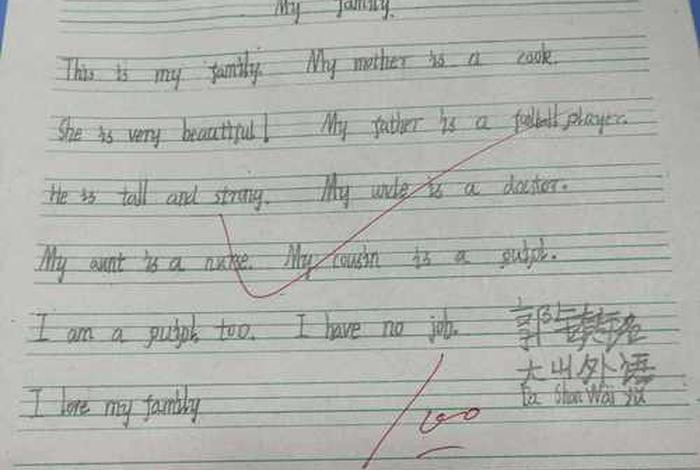 My family.
This is my family. My mother is a cook.
She is very beautiful! My father is a football player.
He is tall and strong. My uncle is a doctor.
My aunt is a nurse. My cousin is a pupil.
I am a pupil too. I have no job.
大山外语
Da Shan Wai Yu
I love my family
100